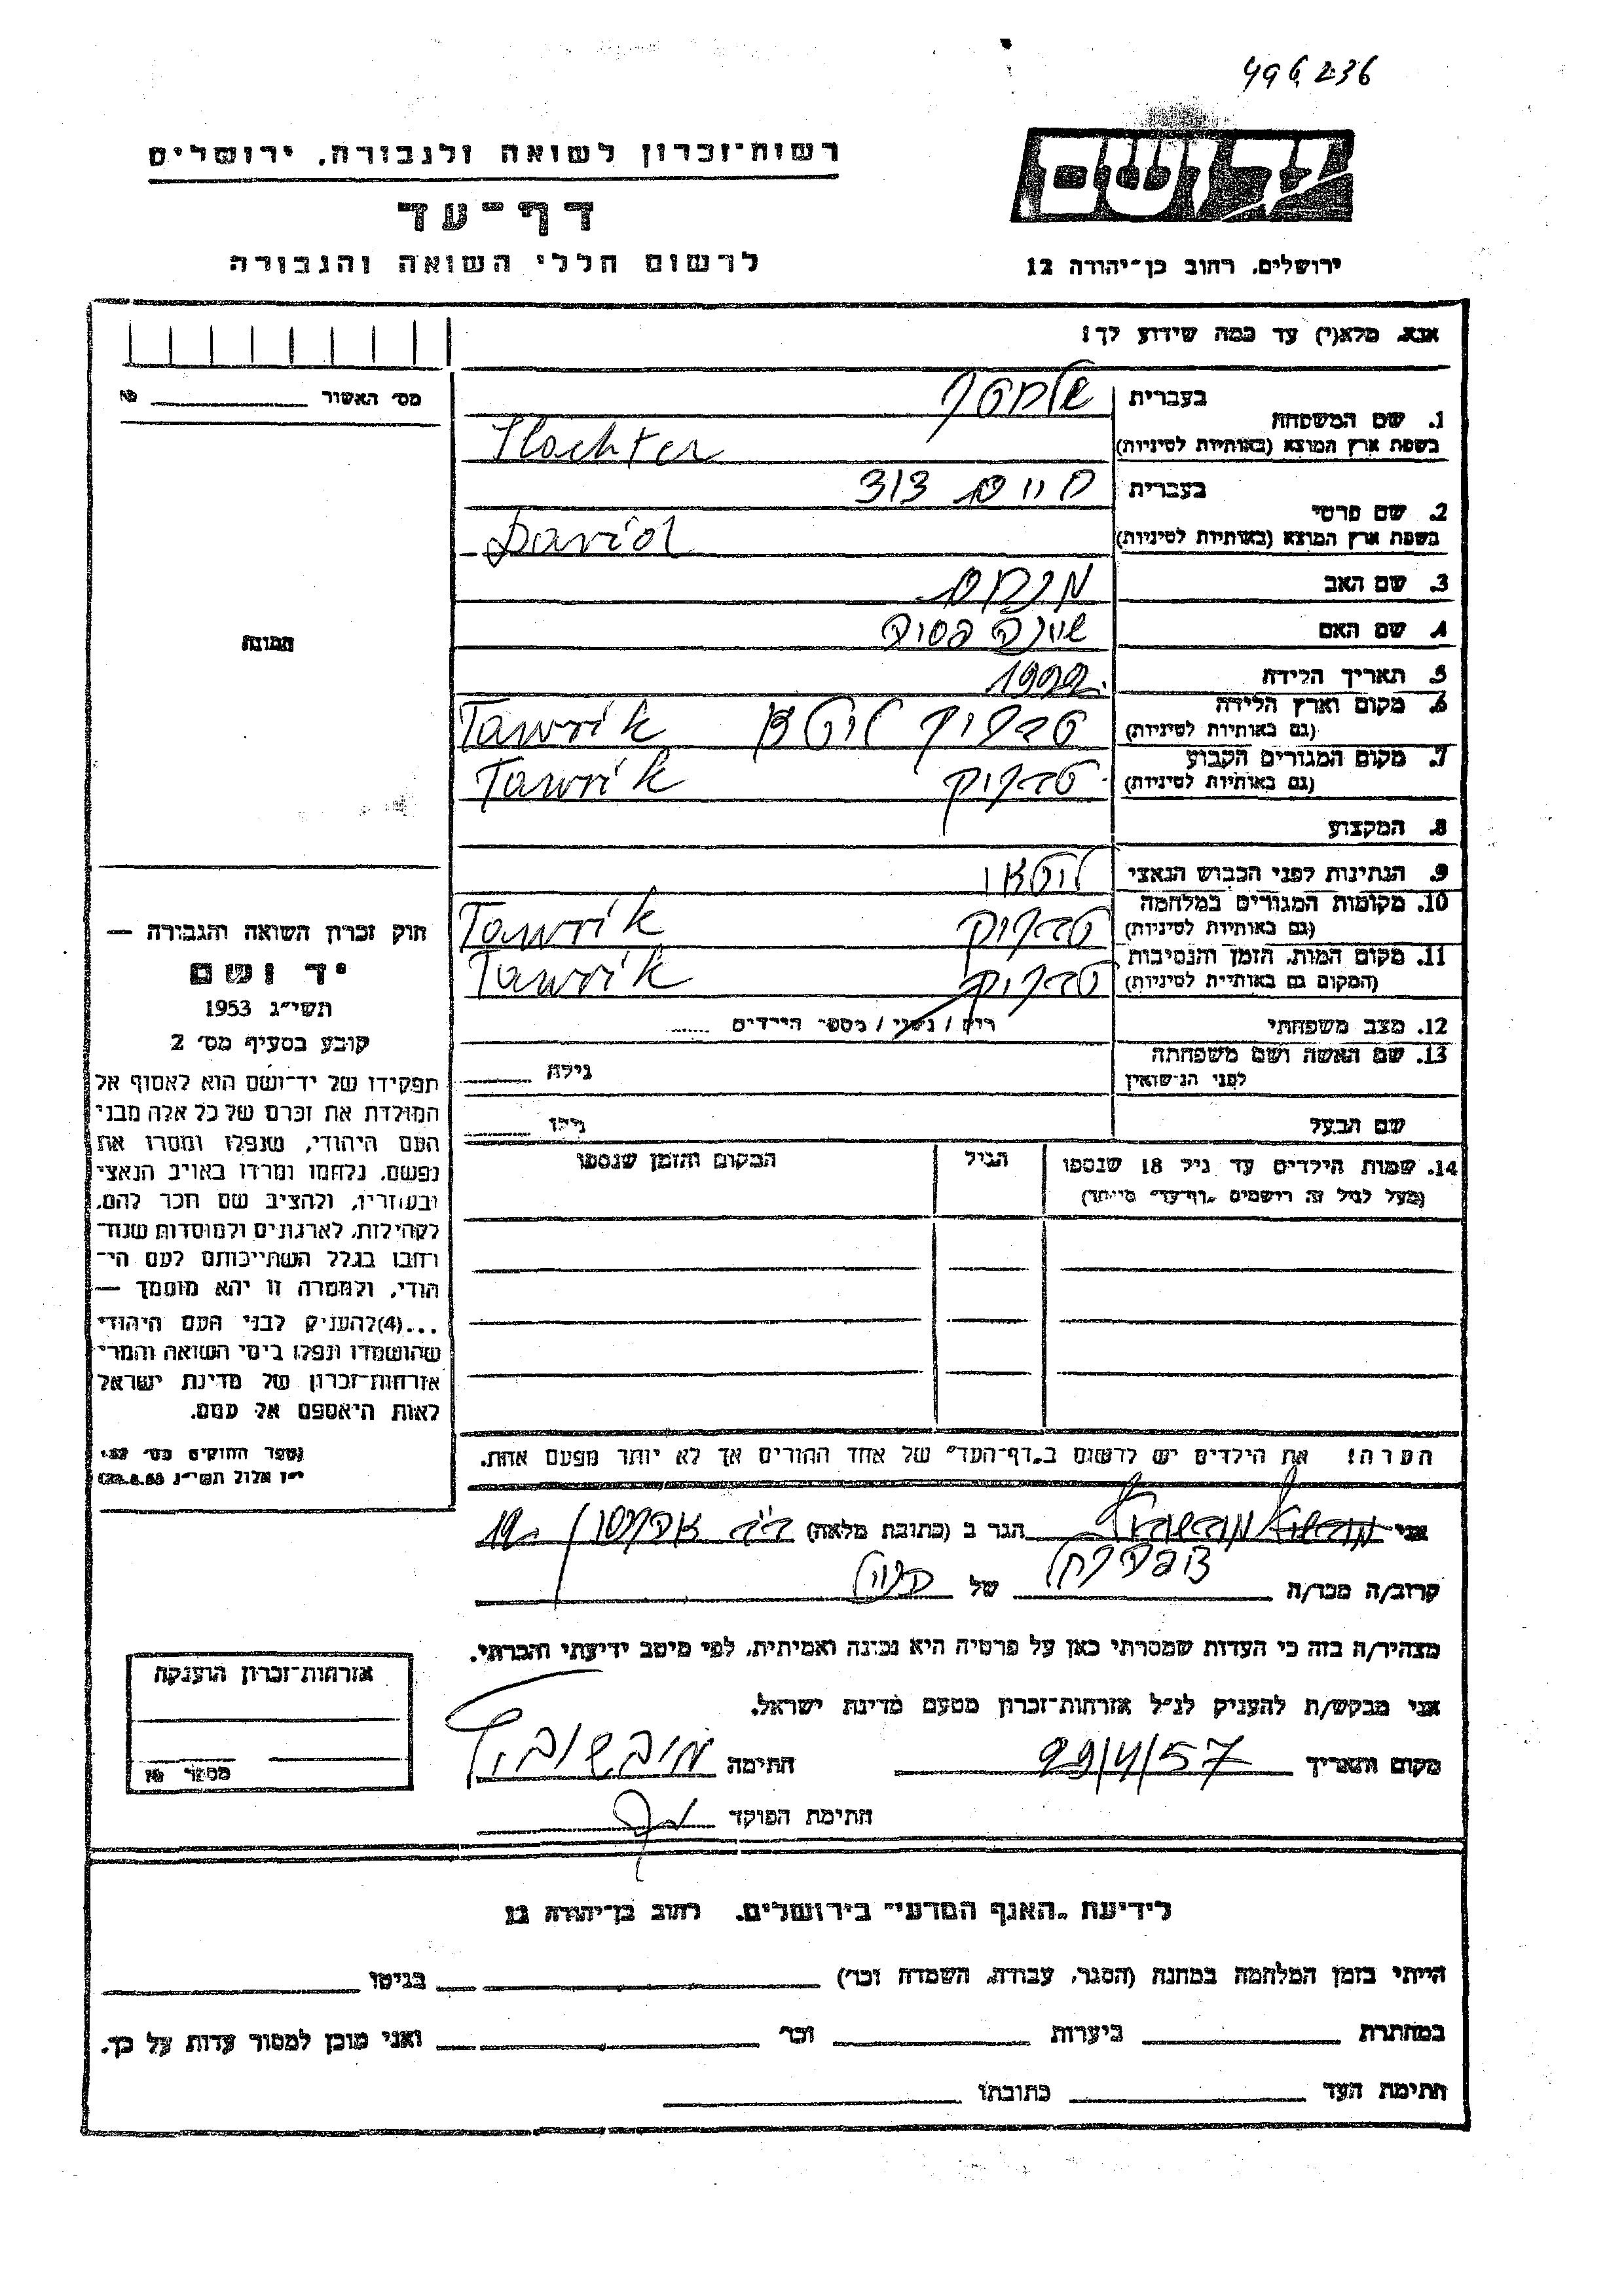 496236
רשות-זכרון לשואה ולגבורה, ירושלים
דף-עד
לרשום חללי השואה והגבורה
יד ושם
ירושלים, רחוב בן-יהודה 12
אנא, מלא(י) עד כמה שידוע לך!
מס׳ האשור №
1. שם המשפחה
בעברית
בשפת ארץ המוצא (באותיות לטיניות) Slachter
2. שם פרטי
בעברית חיים דוד
בשפת ארץ המוצא (באותיות לטיניות) David
3. שם האב מנחם
4. שם האם
5. תאריך הלידה
6. מקום וארץ הלידה
(גם באותיות לטיניות) Tawrik
7. מקום המגורים הקבוע
(גם באותיות לטיניות) Tawrik
8. המקצוע
9. הנתינות לפני הכבוש הנאצי ליטאי
10. מקומות המגורים במלחמה
(גם באותיות לטיניות) Tawrik
11. מקום המות, הזמן והנסיבות
(המקום גם באותיות לטיניות) Tawrik
12. מצב משפחתי רוק / נשוי / מספר הילדים
13. שם האשה ושם משפחתה
לפני הנישואין גילה
שם הבעל גילו
14. שמות הילדים עד גיל 18 שנספו הגיל המקום והזמן שנספו
(מעל לגיל זה רושמים „דף-עד״ מיוחד)
תמונה
חוק זכרון השואה והגבורה —
יד ושם
תשי״ג 1953
קובע בסעיף מס׳ 2
תפקידו של יד-ושם הוא לאסוף אל
המולדת את זכרם של כל אלה מבני
העם היהודי, שנפלו ומסרו את
נפשם, נלחמו ומרדו באויב הנאצי
ובעוזריו, ולהציב שם וזכר להם,
לקהילות, לארגונים ולמוסדות שנח־
רבו בגלל השתייכותם לעם הי־
הודי, ולמטרה זו יהא מוסמך —
...(4) להעניק לבני העם היהודי
שהושמדו ונפלו בימי השואה והמרי
אזרחות-זכרון של מדינת ישראל
לאות היאספם אל עמם.
הערה! את הילדים יש לרשום ב„דף-העד״ של אחד ההורים אך לא יותר מפעם אחת.
אני הגר ב (כתובת מלאה)
קרוב/ה מכר/ה של
מצהיר/ה בזה כי העדות שמסרתי כאן על פרטיה היא נכונה ואמיתית, לפי מיטב ידיעתי והכרתי.
אני מבקש/ת להעניק לנ״ל אזרחות-זכרון מטעם מדינת ישראל.
מקום ותאריך 29/4/57 חתימה
חתימת הפוקד
אזרחות-זכרון הוענקה
מספר №
לידיעת „האגף המדעי״ בירושלים, רחוב בן-יהודה 12
הייתי בזמן המלחמה במחנה (הסגר, עבודה, השמדה וכו׳) בגיטו
במחתרת ביערות וכו׳ ואני מוכן למסור עדות על כך.
חתימת העד כתובתו